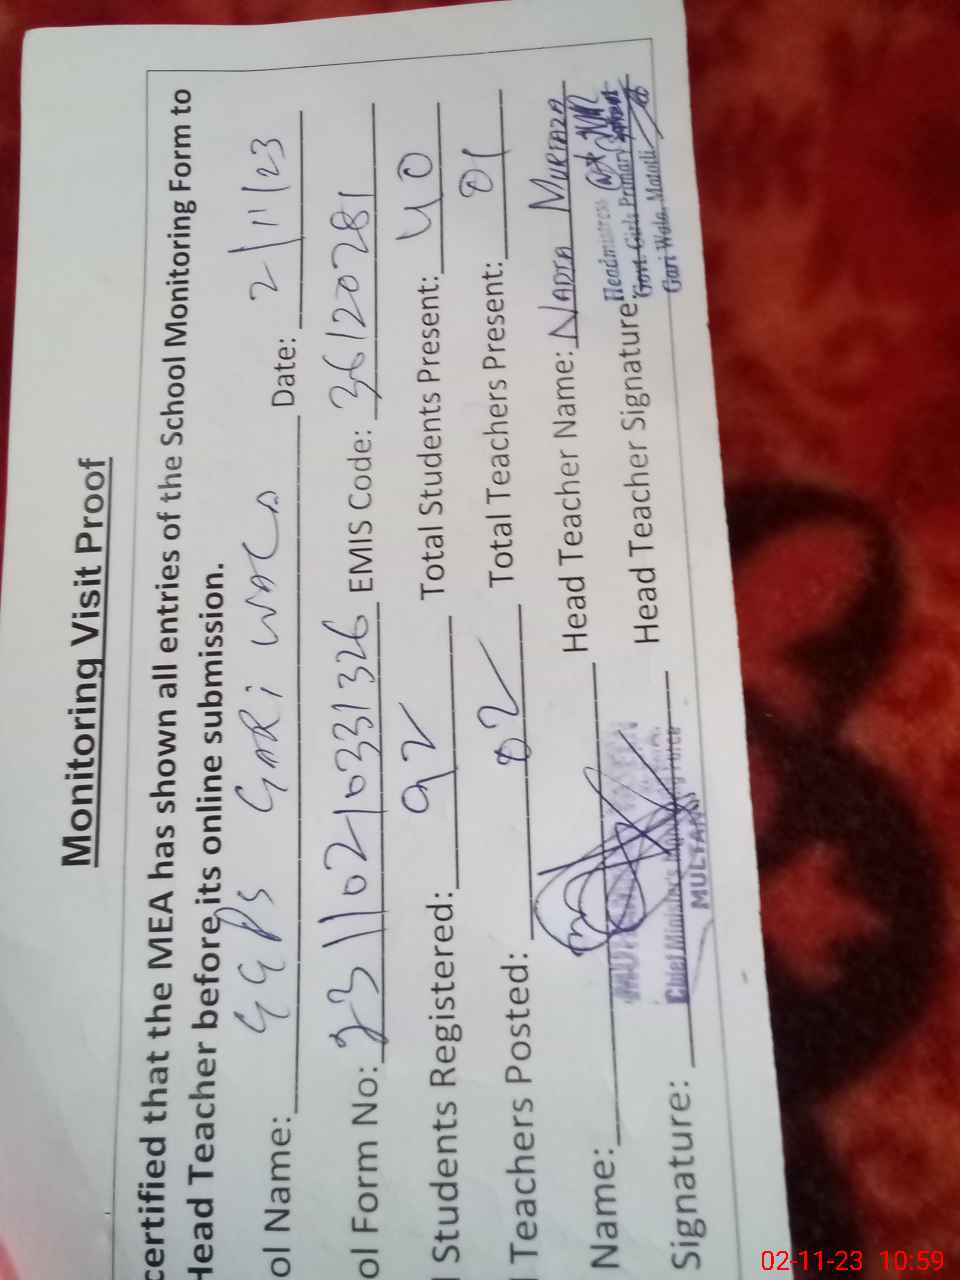 Monitoring Visit Proof
certified that the MEA has shown all entries of the School Monitoring Form to
Head Teacher before its online submission.
ol Name: GGPS GARi WALA Date: 2/11/23
ol Form No: 231102/0331326 EMIS Code: 36120281
l Students Registered: 92 Total Students Present: 40
l Teachers Posted: 02 Total Teachers Present: 01
Name: Head Teacher Name: NADIA MURTAZA
Signature: Head Teacher Signature:
Chief Minister's Monitoring Force
MULTAN
Headmistress
Govt. Girls Primary School
Gari Wala, Matotli
02-11-23 10:59